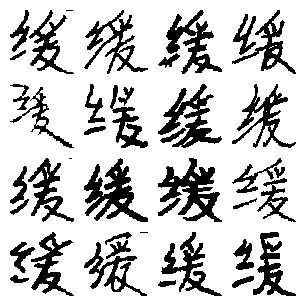 缓缓缓缓
缓缓缓缓
缓缓缓缓
缓缓缓缓